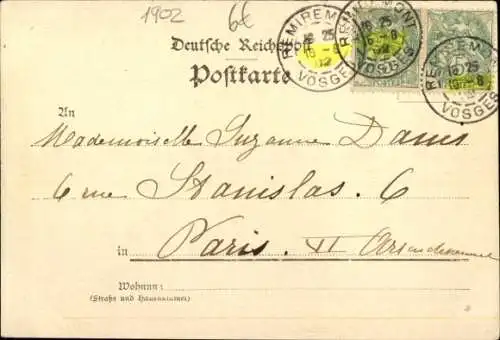 1902 6t
Deutsche Reichspost
Postkarte
REMIREMONT 16 25 15 -8 02 VOSGES
REMIREMONT 16 25 15 -8 02 VOSGES
REMIREMONT 16 25 15 -8 VOSGES
An
Mademoiselle Suzanne Danis
6 rue Stanislas. 6
in Paris. VI Arrondissement
Wohnung:
(Straße und Hausnummer)